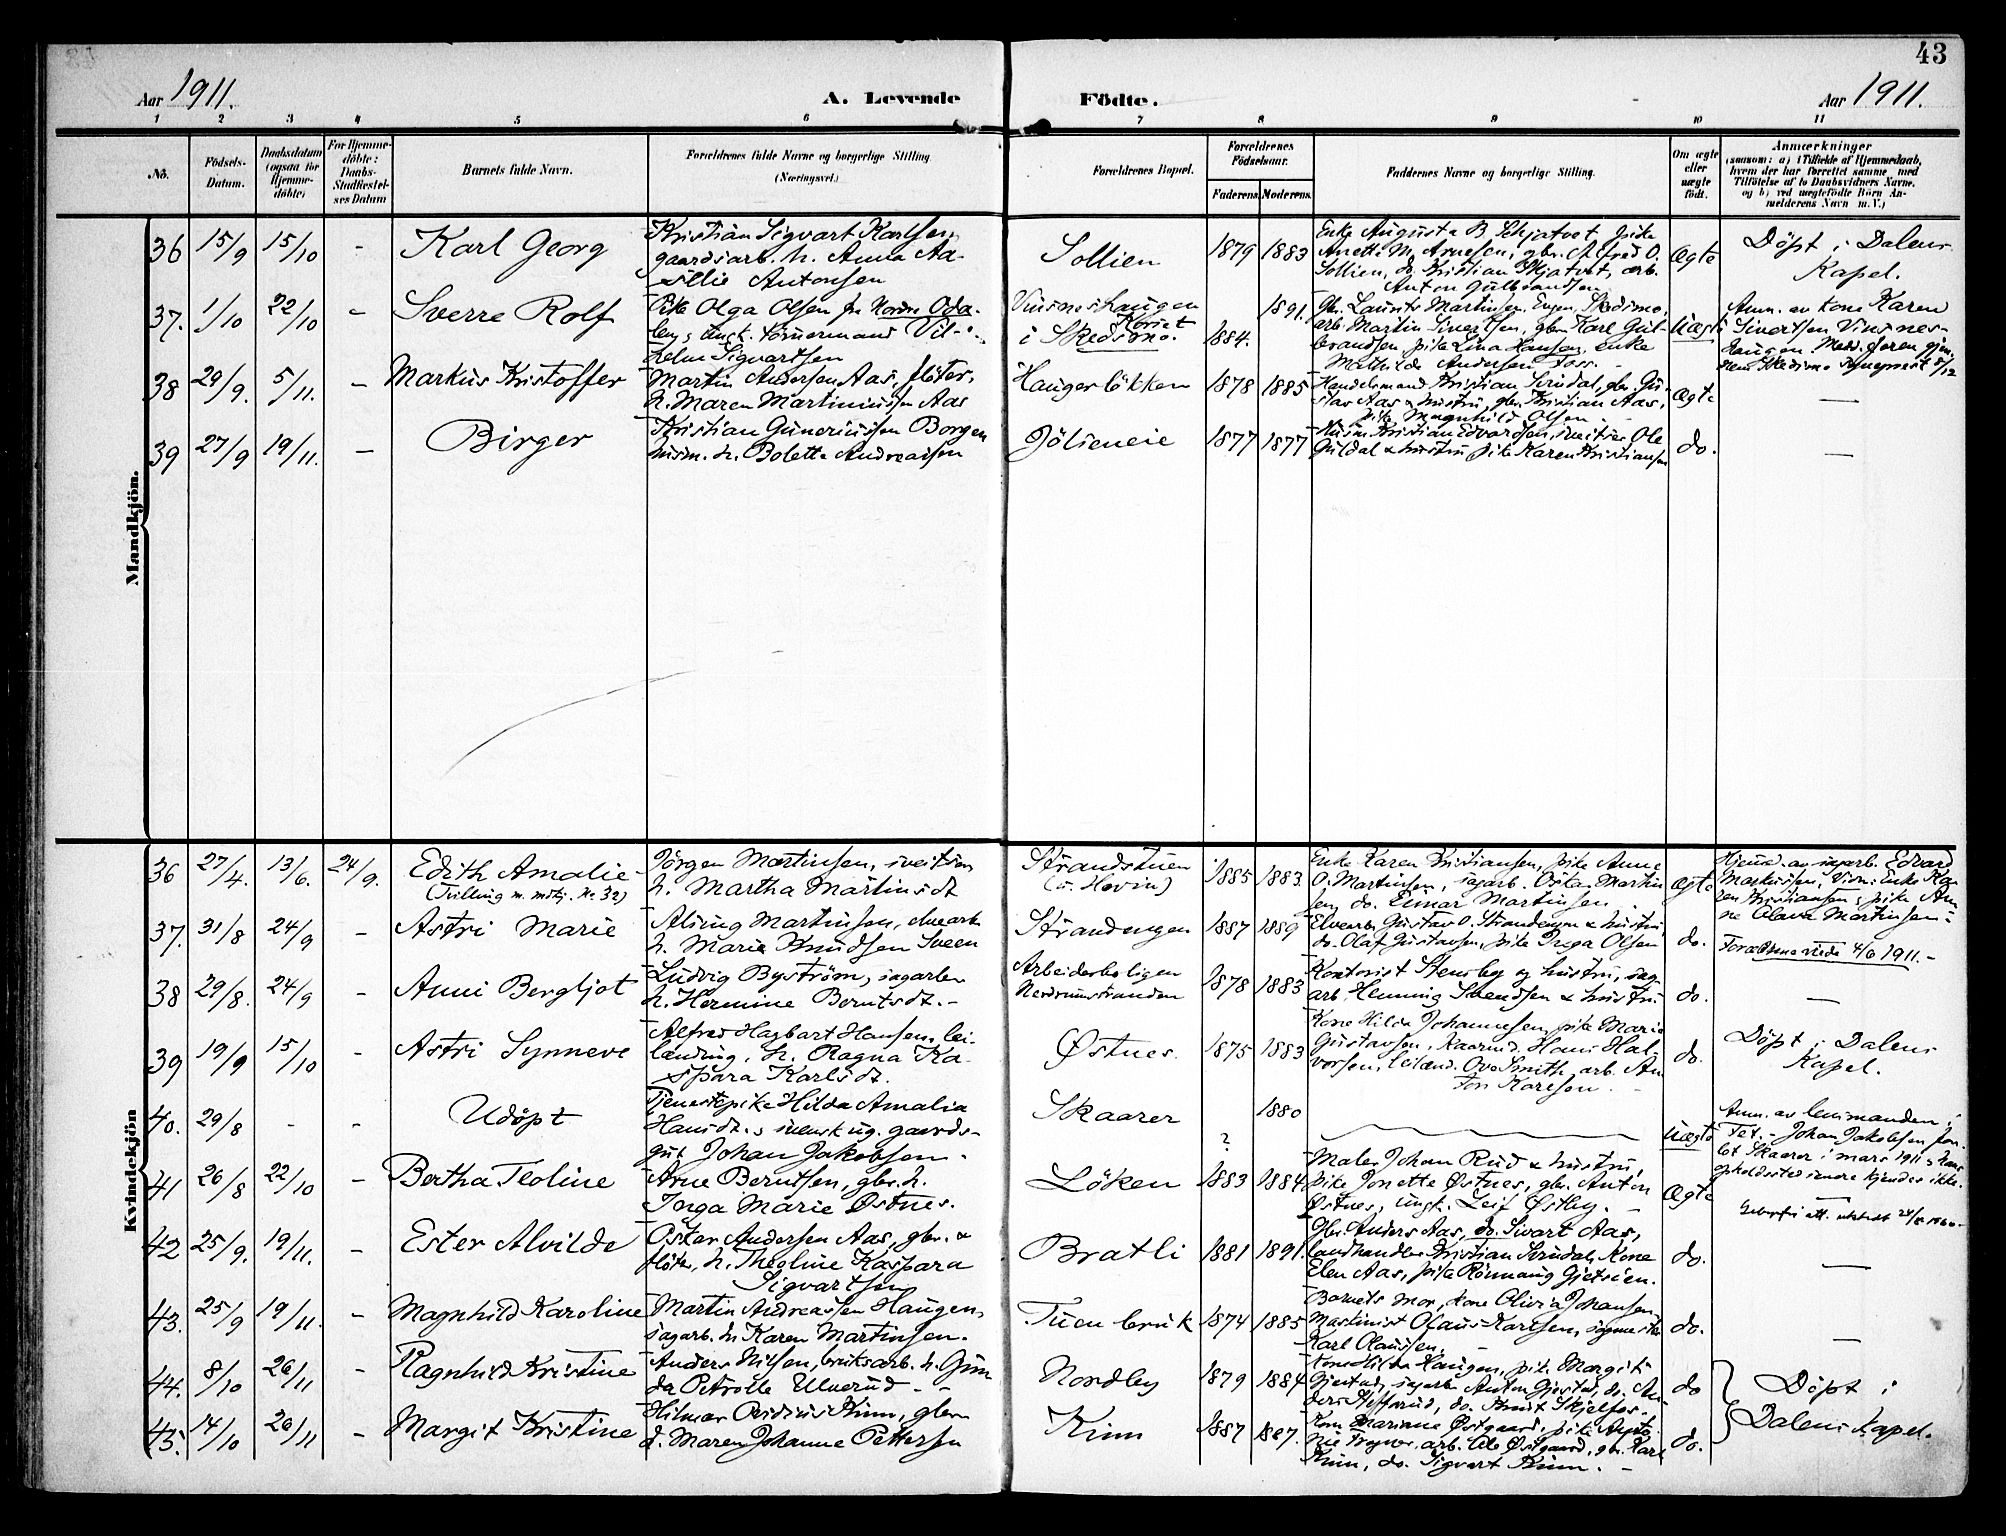 43
Aar 1911.
A. Levende Födte.
Aar 1911.
1 2 3 4 5 6 7 8 9 10 11
No.
Födsels-Datum.
Daabsdatum (ogsaa for Hjemmedöbte)
For Hjemmedöbte: Daabs-Stadfæstelses Datum
Barnets fulde Navn.
Forældrenes fulde Navne og borgerlige Stilling. (Næringsvei.)
Forældrenes Bopæl.
Forældrenes Födselsaar.
Faderens. Moderens.
Faddernes Navne og borgerlige Stilling.
Om ægte eller uægte födt.
Anmærkninger
(saasom: a) i Tilfælde af Hjemmedaab,
hvem der har forrettet samme, med
Tilföielse af to Daabsvidners Navne,
og b) ved uægtefödte Börn Anmelderens Navn m. V.)
Mandkjön.
36 15/9 15/10 - Karl Georg
Kristian Sigvart Karlsen,
gaardsarb. h. Anna Aaslie Antonsen
Sollien 1879 1883
Enke Augusta B Skjatvet pike
Anette M. Arnesen, gbr. Alfred O.
Sollien, do. Kristian Skjatvet, arb.
Anton Gulbrandsen
Ægte
Döpt i Dalens Kapel.
37. 1/10 22/10 - Sverre Rolf
Pike Olga Olsen fr. Nordre Odalen, s ungk. tömmermand Vilhelm Sigvartsen
Vinsneshaugen i Skedsmo. 1884. 1891.
Gbr. Laurits Martinsen Engen Skedsmo,
arb. Martin Sivertsen, gbr Karl Gulbrandsen pike Lina Hansen, enke
Mathilde Andersen Foss. -
Uægte
Anm. av kone Karen
Sivertsen Vinsneshaugen.
38 29/9. 5/11. - Markus Kristoffer
Martin Andersen Aas, flöter,
h. Maren Martiniussen Aas
Haugerlökken 1878 1885
Handelsmand Kristian Svindal, gbr. Gustav Aas & hustru, gbr. Kristian Aas,
pike Magnhild Olsen
Ægte -
39 27/9 19/11. - Birger
Kristian Guneriussen Borgen
husm. h. Bolette Andreassen
Jölieneie 1877 1877
Husm. Kristian Edvardsen, sveitser Ole
Guldal & hustru pike Karen Kristiansen
do. -
Kvindekjön
36 27/4. 13/6. 24/9. Edith Amalie
(Tvilling m. mkj. No. 32)
Jörgen Martinsen, sveitser
h. Martha Martinsdt
Strandstuen
(u. Hovin) 1885 1883.
Enke Karen Kristiansen, pike Anne
O. Martinsen, sagarb. Oskar Martinsen, do. Einar Martinsen
Ægte
Hjemd. av sagarb. Edvard
Markussen, Vidn: Enke Karen Kristiansen & pike Anne Olava Martinsen -
37. 31/8 24/9 - Astri Marie
Aling Martinsen, elvearb.
h. Marie Knudsen Sveen
Strandengen 1887 1889
Elvearb. Gustav O. Strandengen & hustru
do. Olaf Gustavsen, pike Inga Olsen
do. Forældrene viede 4/6 1911. -
38 29/8. 24/9 - Anni Bergljot
Ludvig Byström, sagarb.
h. Hermine Berntsdt. -
Arbeiderboligen
Nerdrumstranden 1878 1883
Kontorist Stensby og hustru, sagarb. Henning Svendsen & hustru
do. -
39 19/9 15/10 - Astri Synneve
Alfred Hagbart Hansen, leilænding, h. Ragna Kaspara Karlsdt.
Østnes. 1875 1883
Kone Hilda Johannesen, pike Marie
Gustavsen, Hans Halvorsen, leilænd. Ove Smith, arb. Anton Karlsen. -
do.
Döpt i Dalens Kapel.
40. 29/8 - - Udöpt
Tjenestepike Hilda Amalia
Hansdt. s svensk ug. gaardsgut Johan Jakobsen.
Skaarer ? 1880
Uægte
Anm. av lensmanden i
Fet. - Johan Jakobsen forlot Skaarer i mars 1911 s hans
opholdssted senere kjendes ikke.
41 26/8 22/10 - Bertha Teoline
Arne Berntsen, gbr. h.
Inga Marie Østnes.
Löken 1883 1884.
Maler Johan Rud & hustru,
pike Jonette Østnes, gbr. Anton
Østnes, ungk. Leif Østby. -
Ægte
42 25/9. 19/11. - Ester Alvilde
Oskar Andersen Aas, gbr. &
flöter, h. Theoline Kaspara
Sigvartsen
Bratli 1881 1891.
Gbr. Anders Aas, do. Sivart Aas,
landhandler Kristian Svindal, Kone
Elen Aas, pike Rönnaug Gjetsien.
do. -
43. 25/9 19/11. - Magnhild Karoline
Martin Andreassen Haugen,
sagarb. h. Karen Martinsen.
Tuen bruk 1874 1885
Barnets mor, kone Olivia Johansen
Maskinist Olaus Karlsen, sagmester
Karl Olaussen.
do. -
44. 8/10 26/11 - Ragnhild Kristine
Anders Nilsen, bruksarb. h. Gunda Petrolle Ulverud - -
Nordby 1879 1884
Kone Hilda Haugen, pike Margit
Gjestad, sagarb Anton Gjestad, do. Anders Hofsrud, do. Knut Skjelfos.
do
Döpt i
Dalens Kapel.
45. 14/10 26/11 - Margit Kristine
Hilmar Ovidius Kinn, gbr.
h. Maren Johanne Pettersen
Kinn 1887 1887.
Kone Marianne Østgaard, pike
arb. Ole Østgaard, gbr. Karl
Kinn, do. Sigvart Kinn. -
do.